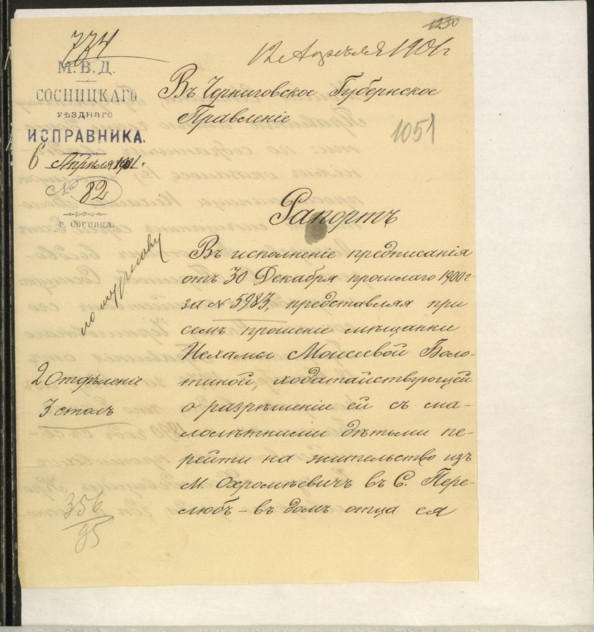 1230
774
12 Апрѣля 1901 г
М. В. Д.
СОСНИЦКАГО
УѢЗДНАГО
ИСПРАВНИКА.
6 Апрѣля 1901 г.
№
82
г. Сосница.
Въ Черниговское Губернское
Правленіе
1051
Рапортъ
Въ исполненіе предписанія
отъ 30 Декабря прошлаго 1900 г
за № 5983, представляя при
семъ прошеніе мѣщанки
Нехамы Моисеевой Боло-
тиной, ходатайствующей
о разрѣшеніи ей съ ма-
лолѣтними дѣтьми пе-
рейти на жительство изъ
М. Охромѣевичъ въ С. Пере-
любъ – въ домъ отца ея
по
2 Отдѣленіе
3 столъ
356
95